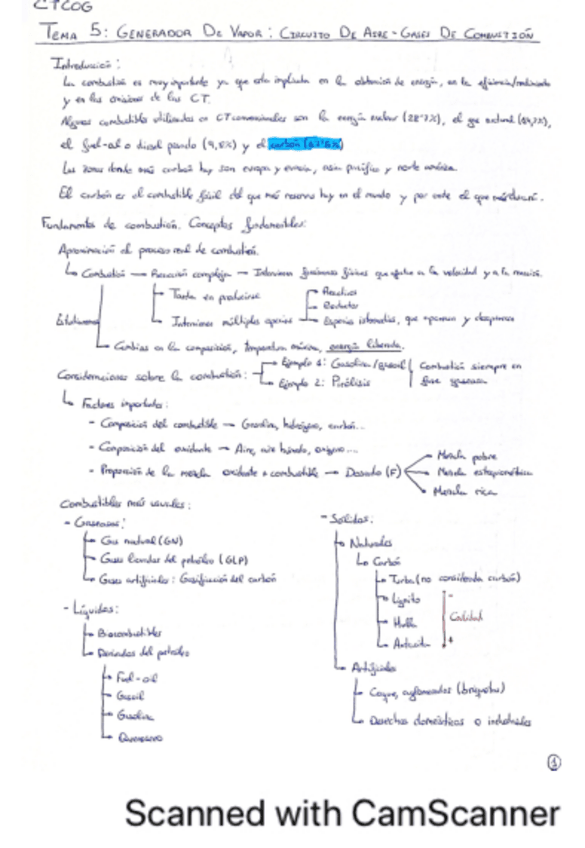 CTCOG
TEMA 5: GENERADOR DE VAPOR: CIRCUITO DE AIRE - GASES DE COMBUSTIÓN
Introducción:
La combustión es muy importante ya que está implicada en la obtención de energía, en la eficiencia/rendimiento
y en las emisiones de las CT.
Algunos combustibles utilizados en CT convencionales son la energía nuclear (28'7%), el gas natural
el fuel-oil o diesel pesado (9,8%) y el carbón
Las zonas donde más carbón hay son europa y eurasia, asia pacífico y norte américa.
El carbón es el combustible fósil del que más reservas hay en el mundo y por ende el que más durará.
Fundamentos de combustión. Conceptos fundamentales:
Aproximación al proceso real de combustión.
Combustión → Reacción compleja → Intervienen fenómenos físicos que afectan a la velocidad y a la reacción.
Tarda en producirse
Reactivos
Productos
Intervienen múltiples especies
Especies intermedias, que aparecen y desaparecen
Cambios en la composición, temperatura máxima, energía liberada.
Consideraciones sobre la combustión:
Ejemplo 1: Gasolina/gasoil
Ejemplo 2: Pirólisis
Combustión siempre en
fase gaseosa
Factores importantes:
- Composición del combustible → Gasolina, hidrógeno, carbón...
- Composición del oxidante → Aire, aire húmedo, oxígeno...
- Proporción de la mezcla oxidante o combustible → Dosado (F)
Mezcla pobre
Mezcla estequiométrica
Mezcla rica
Combustibles más usuales:
- Gaseosos:
Gas natural (GN)
Gases licuados del petróleo (GLP)
Gases artificiales: Gasificación del carbón
- Líquidos:
Biocombustibles
Derivados del petróleo
Fuel-oil
Gasoil
Gasolina
Queroseno
- Sólidos:
Naturales
Carbón
Turba (no considerada carbón)
Lignito
Hulla
Antracita
- Calidad +
Artificiales
Coque, aglomerados (briquetas)
Desechos domésticos o industriales
1
Scanned with CamScanner